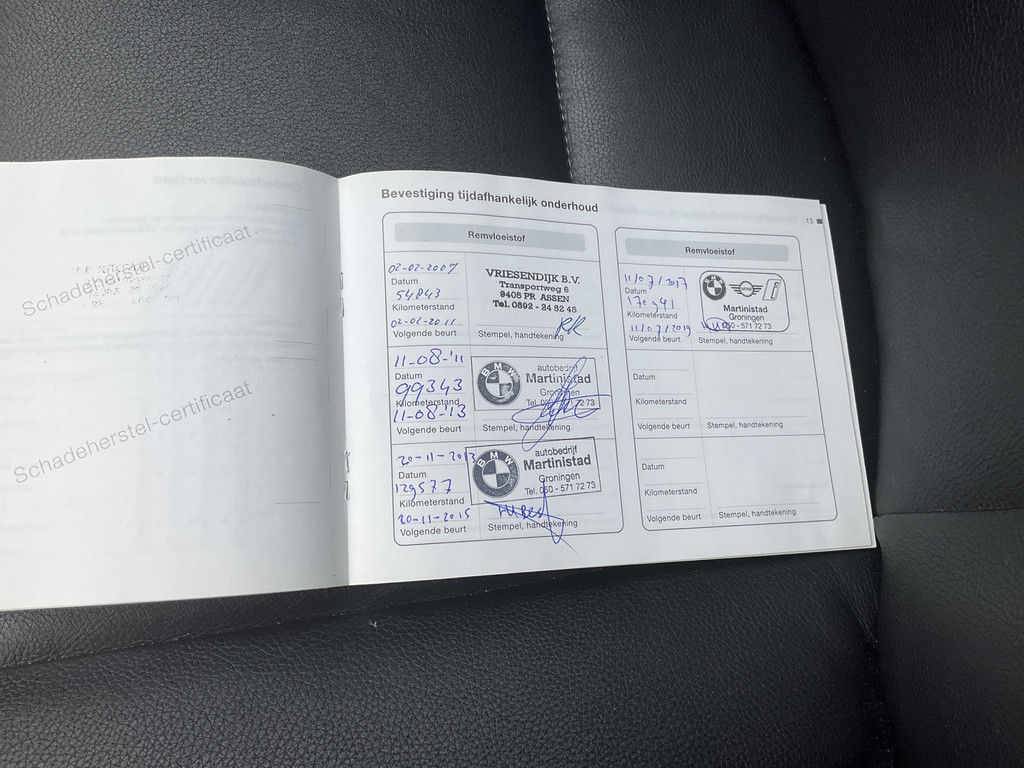 Schadeherstel-certificaat
Schadeherstel-certificaat
Bevestiging tijdafhankelijk onderhoud
Remvloeistof
02-02-2009
Datum
54843
Kilometerstand
02-02-2011
Volgende beurt
VRIESENDIJK B.V.
Transportweg 6
9405 PR ASSEN
Tel. 0592 - 24 52 45
Stempel, handtekening
11-08-'11
Datum
99343
Kilometerstand
11-08-'13
Volgende beurt
BMW
autobedrijf
Martinistad
Groningen
Tel. 050 - 571 72 73
Stempel, handtekening
20-11-2013
Datum
129577
Kilometerstand
20-11-2015
Volgende beurt
BMW
autobedrijf
Martinistad
Groningen
Tel. 050 - 571 72 73
Stempel, handtekening
13
Remvloeistof
11/07/2017
Datum
170941
Kilometerstand
11/07/2019
Volgende beurt
Martinistad
Groningen
050 - 571 72 73
Stempel, handtekening
Datum
Kilometerstand
Volgende beurt
Stempel, handtekening
Datum
Kilometerstand
Volgende beurt
Stempel, handtekening